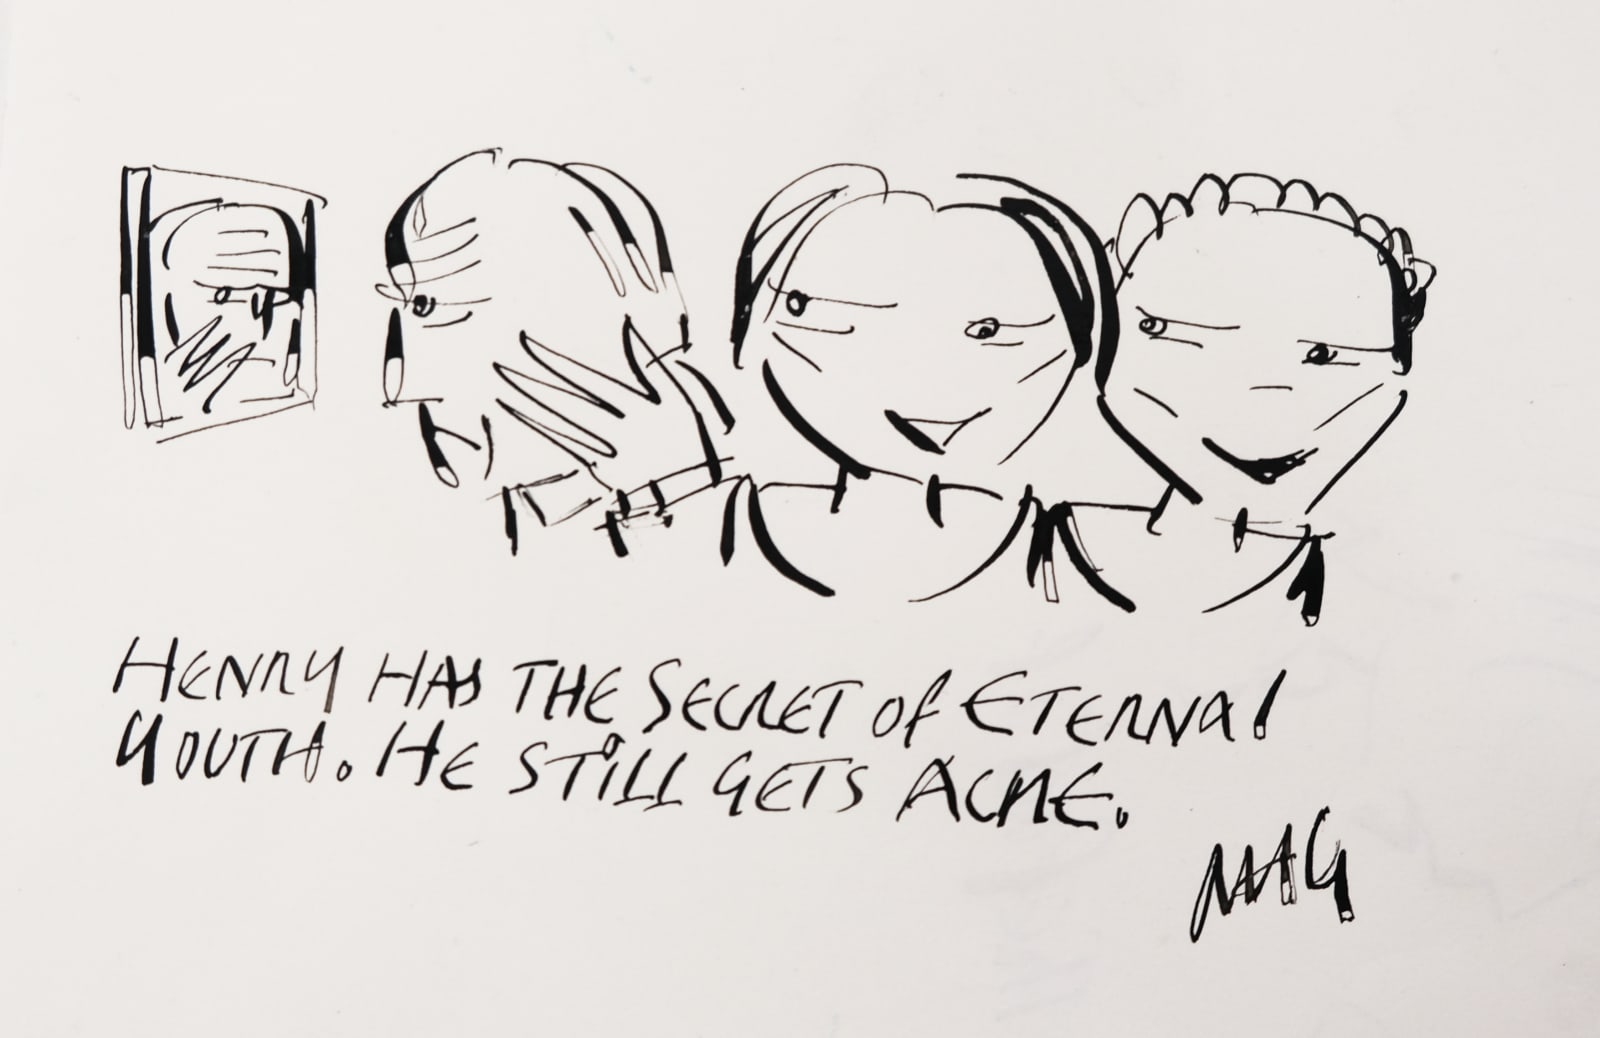 HENRY HAS THE SECRET OF ETERNAl
YOUTH. HE STiLL GETS ACNE.
MAG